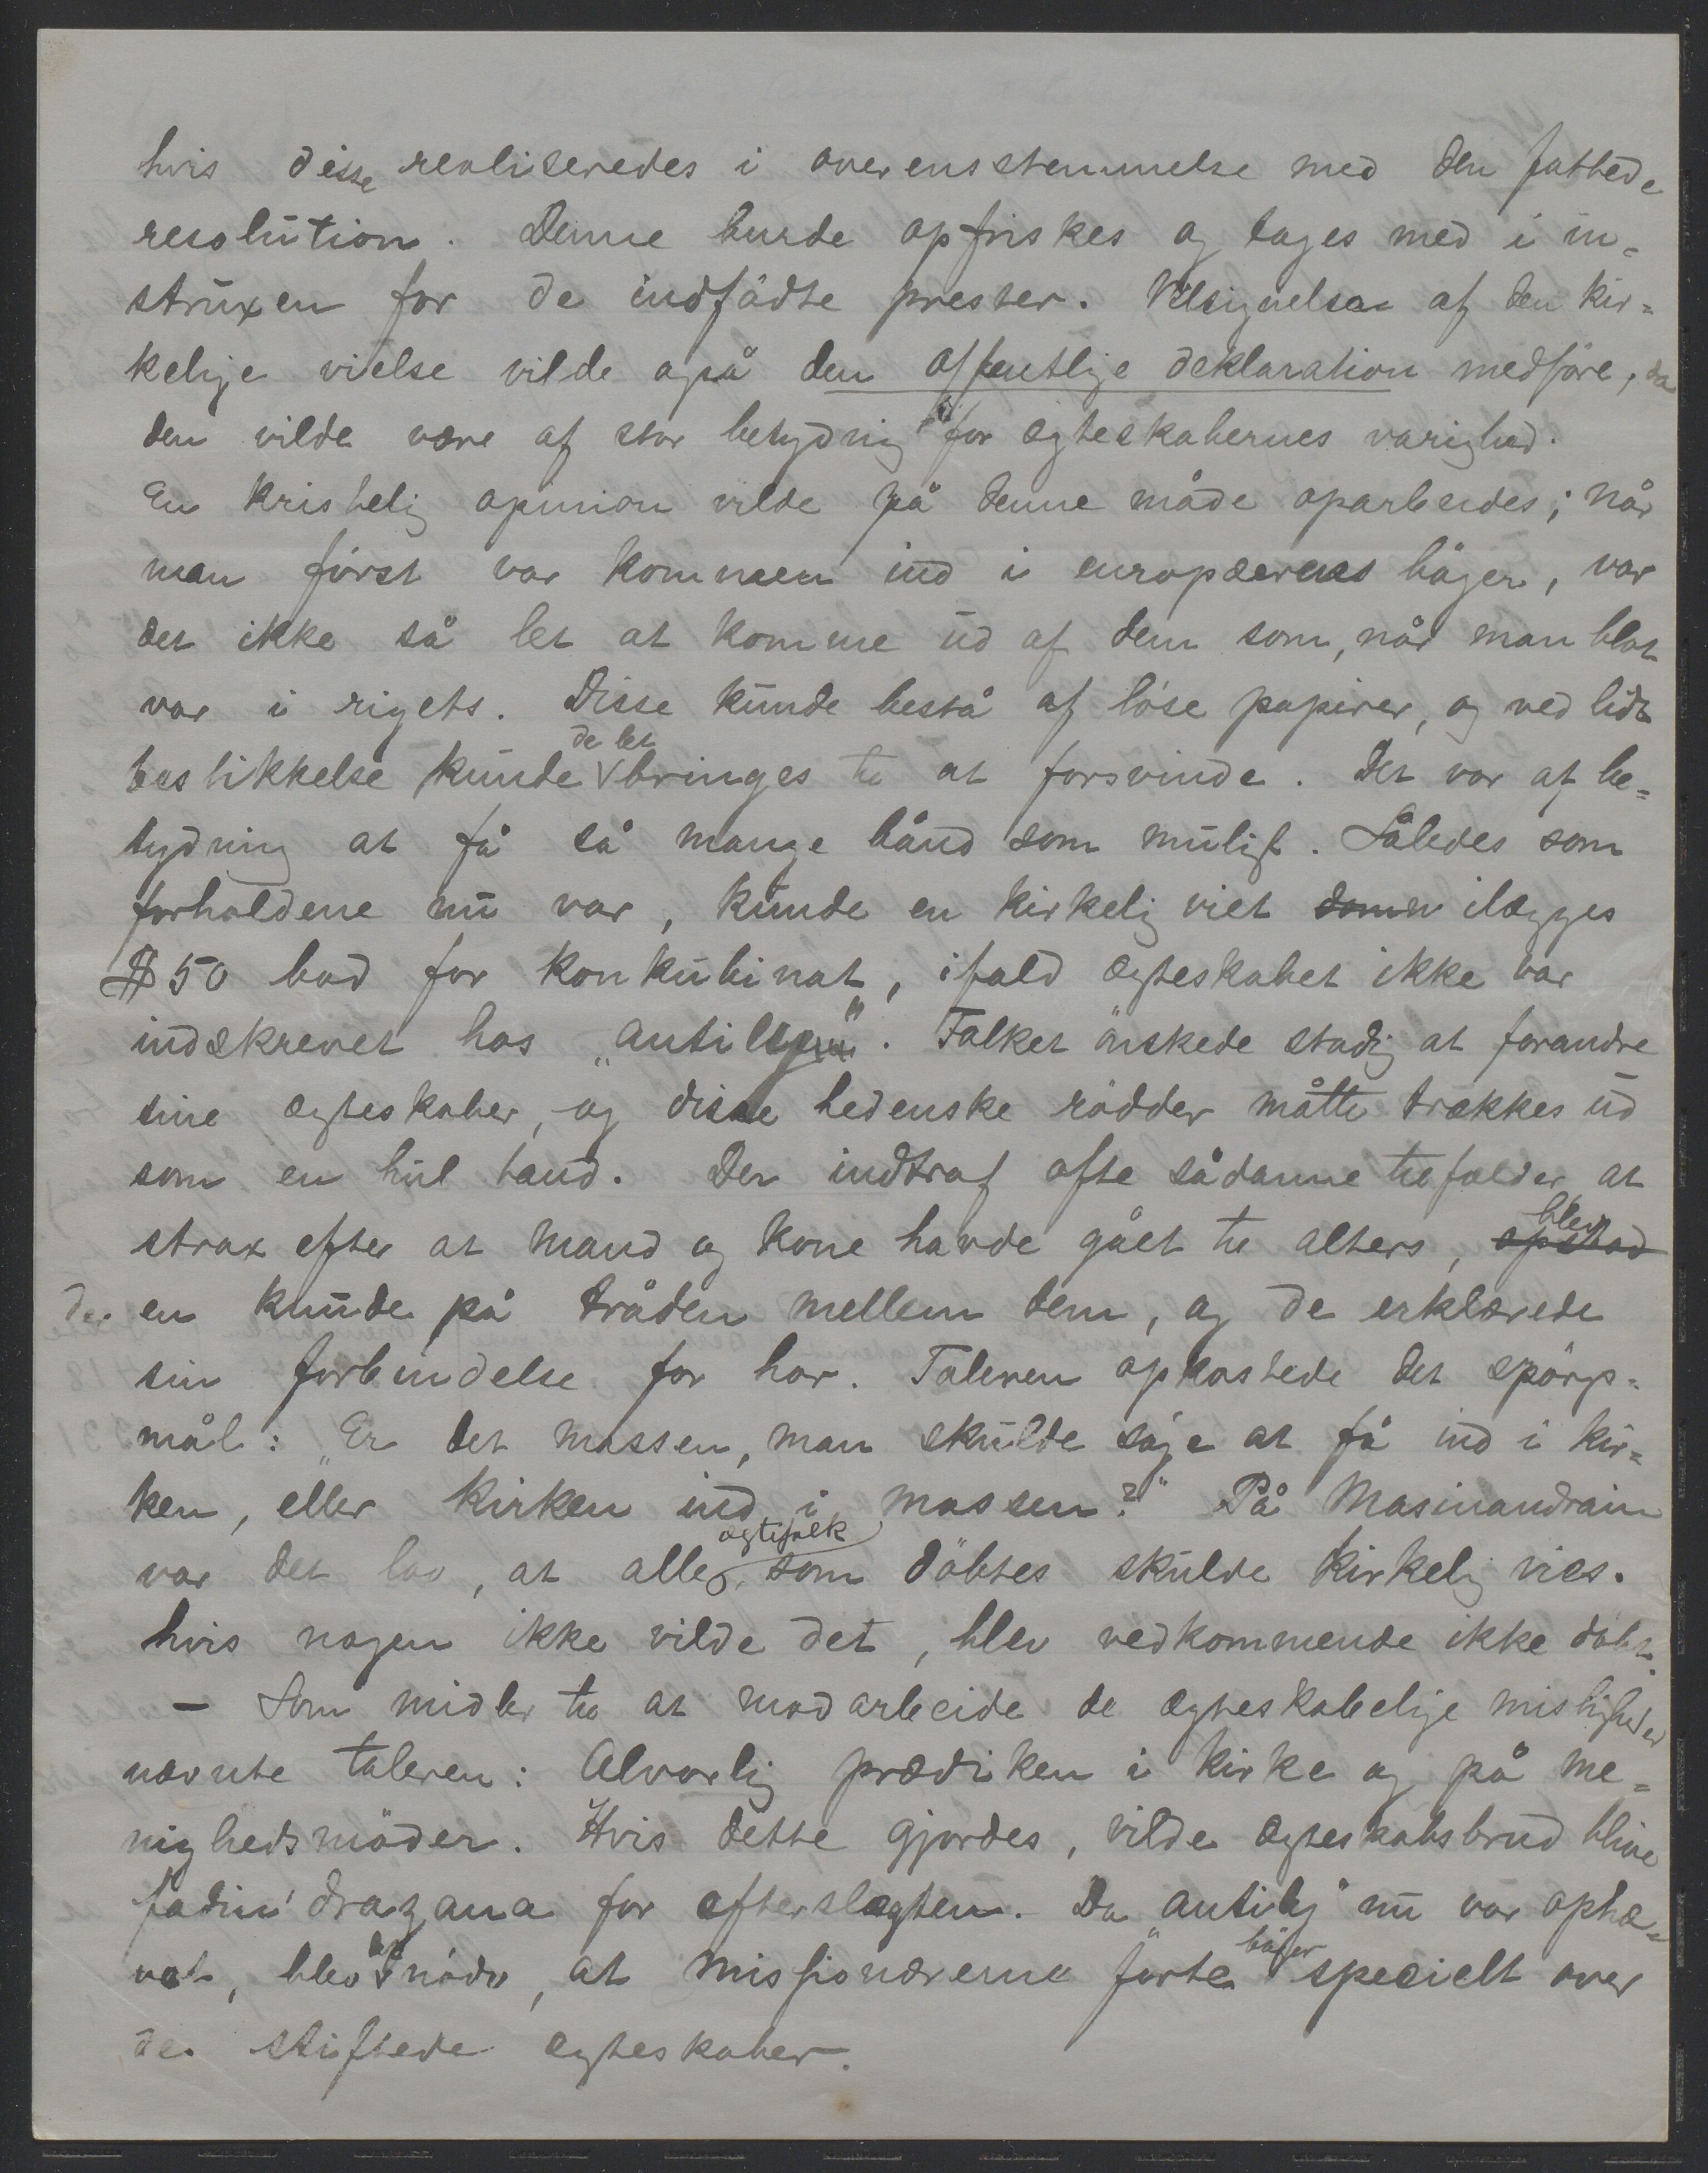 hvis disse realiseredes i overensstemmelse med den fattede
resolution. Denne burde opfriskes og tages med i in=
struxen for de indfødte prester. Velsignelsen af den kir=
kelige vielse vilde også den offentlige deklaration medføre, da
den vilde være af stor betydning for ægteskabernes varighed.
En kristelig opinion vilde på denne måde oparbeides; når
man först var kommen ind i europæernes bøger, var
det ikke så let at komme ud af dem som, når man blot
var i rigets. Disse kunde bestå af løse papirer, og ved lidt
bestikkelse kunde de let bringes til at forsvinde. Det var af be=
tydning at få så mange bånd som muligt. Således som
forholdene nu var, kunde en kirkelig viet ilægges
$ 50 bod for konkubinat, ifald ægteskabet ikke var
indskrevet hos „antily“. Folket ønskede stadig at forandre
sine ægteskaber, og disse hedenske rødder måtte trækkes ud
som en hul tand. Der indtraf ofte sådanne tilfælder, at
strax efter at mand og kone havde gået til alters, opstod blev
der en knude på tråden mellem dem, og de erklærede
sin forbindelse for hor. Taleren opkastede det spørgs=
mål: „Er det massen, man skulde søge at få ind i kir=
ken, eller kirken ind i massen?“ På Masinandraina
var det lov, at alle ægtefolk som døbtes skulde kirkelig vies.
hvis nogen ikke vilde det, blev vedkommende ikke døbt.
— Som midler til at modarbeide de ægteskabelige misligheder
nævnte taleren: Alvorlig prædiken i kirke og på me=
nighedsmøder. Hvis dette gjordes, vilde ægteskabsbrud blive
fadin' drazana for efterslægten. Da „antily“ nu var ophæ=
vet, blev det nødv, at missionærerne førte bøger specielt over
de stiftede ægteskaber.